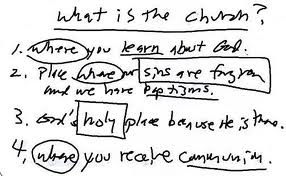 What is the church?
1. where you learn about God.
2. Place where our sins are forgiven
and we have Baptisms.
3. God's holy place because He is there.
4. where you receive communion.